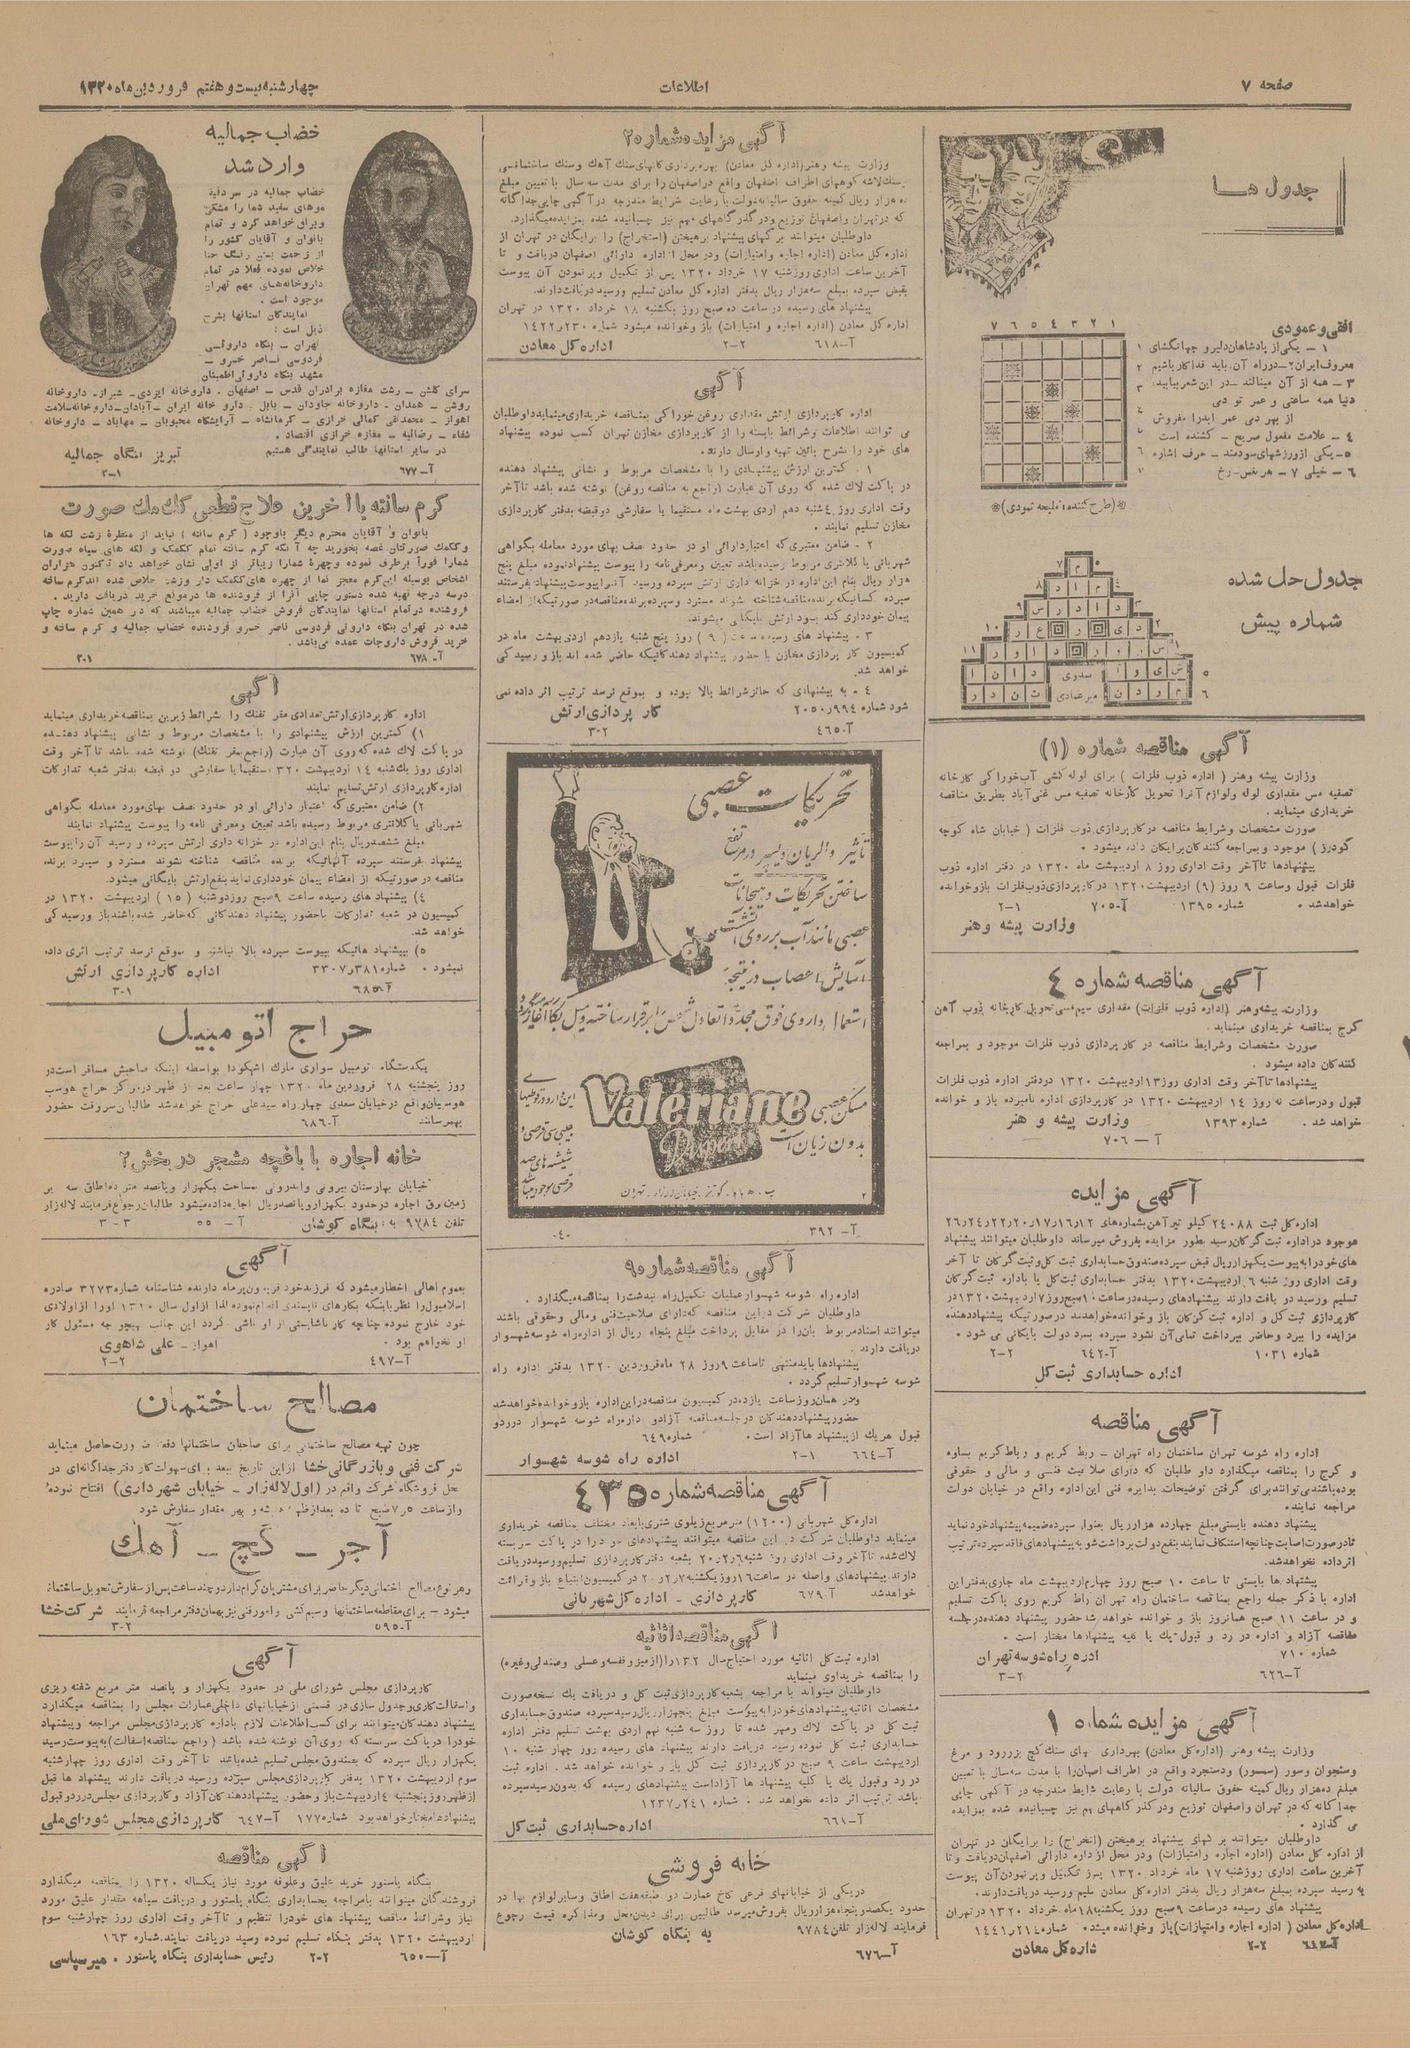 صفحه ۷
اطلاعات
چهارشنبه بیست و هفتم فروردین ماه ۱۳۲۰
جدول ها
افقی و عمودی
۱ – یکی از پادشاهان دلیر و جهانگشای
معروف ایران ۲– دوراه آن. باید فداکار باشیم
۳ – همه از آن مینالند – در این شعر بیابید:
دنیا همه ساعتی و عمر تو دمی
از بهر دمی عمر ابد را مفروش
۴ – علامت مفعول صریح – کشنده است
۵– یکی از ورزشهای سودمند – حرف اشاره
۶ – خیلی ۷ – هر نفس– رخ
(طرح کننده: ملیحه نمودی)
جدول حل شده
شماره پیش
آگهی مناقصه شماره (۱)
وزارت پیشه و هنر ( اداره ذوب فلزات ) برای لوله کشی آب خوراکی کارخانه
تصفیه مس مقداری لوله و لوازم آنرا تحویل کارخانه تصفیه مس غنی آباد بطریق مناقصه
خریداری مینماید.
صورت مشخصات و شرایط مناقصه در کارپردازی ذوب فلزات ( خیابان شاه کوچه
گودرز ) موجود و بمراجعه کنندگان برایگان داده میشود .
پیشنهادها تا آخر وقت اداری روز ۸ اردیبهشت ماه ۱۳۲۰ در دفتر اداره ذوب
فلزات قبول و ساعت ۹ روز (۹) اردیبهشت ۱۳۲۰ در کارپردازی ذوب فلزات باز و خوانده
خواهد شد . شماره ۱۳۹۵ آ–۷۰۵ ۲–۱
وزارت پیشه و هنر
آگهی مناقصه شماره ۴
وزارت پیشه و هنر (اداره ذوب فلزات) مقداری سیم مسی تحویل کارخانه ذوب آهن
کرج بمناقصه خریداری مینماید.
صورت مشخصات و شرایط مناقصه در کارپردازی ذوب فلزات موجود و بمراجعه
کنندگان داده میشود .
پیشنهادها تا آخر وقت اداری روز ۱۳ اردیبهشت ۱۳۲۰ در دفتر اداره ذوب فلزات
قبول و در ساعت نه روز ۱۴ اردیبهشت ۱۳۲۰ در کارپردازی اداره نامبرده باز و خوانده
خواهد شد . شماره ۱۳۹۳ وزارت پیشه و هنر
آ – ۷۰۶
آگهی مزایده
اداره کل ثبت ۲۴۰۸۸ کیلو تیر آهن بشماره های ۱۲ر۱۶ر۱۷ر۲۰ر۲۲ر۲۴ر۲۶
موجود در اداره ثبت گرگان رسید بطور مزایده بفروش میرساند داوطلبان میتوانند پیشنهاد
های خود را به پیوست یکهزار ریال قبض سپرده صندوق حسابداری ثبت کل و ثبت گرگان تا آخر
وقت اداری روز شنبه ۶ اردیبهشت ۱۳۲۰ بدفتر حسابداری ثبت کل یا باداره ثبت گرگان
تسلیم ورسید دریافت دارند پیشنهادهای رسیده در ساعت ۱۰ صبح روز ۷ اردیبهشت ۱۳۲۰ در
کارپردازی ثبت کل و اداره ثبت گرگان باز و خوانده خواهد شد در صورتیکه پیشنهاد دهنده
مزایده را ببرد و حاضر بپرداخت تمامی آن نشود سپرده بسود دولت بایگانی می شود .
شماره ۱۰۳۱ آ–۶۴۲ ۲–۲
اداره حسابداری ثبت کل
آگهی مناقصه
اداره راه شوسه تهران ساختمان راه تهران – ربط کریم و رباط کریم بساوه
و کرج را بمناقصه میگذارد داوطلبان که دارای صلاحیت فنی و مالی و حقوقی
بوده باشند می توانند برای گرفتن توضیحات بدایره فنی این اداره واقع در خیابان دولت
مراجعه نمایند.
پیشنهاد دهنده بایستی مبلغ چهارده هزار ریال بعنوان سپرده ضمیمه پیشنهاد خود نماید
اثر داده نخواهد شد.
پیشنهادها بایستی تا ساعت ۱۰ صبح روز چهارم اردیبهشت ماه جاری بدفتر این
اداره با ذکر جمله راجع بمناقصه ساختمان راه تهران رباط کریم روی پاکت تسلیم
و در ساعت ۱۱ صبح همانروز باز و خوانده خواهد شد حضور پیشنهاد دهنده در جلسه
مناقصه آزاد و اداره در رد و قبول یک یا کلیه پیشنهادها مختار است .
شماره ۷۱۰ اداره راه شوسه تهران
آ–۶۲۶ ۳–۲
آگهی مزایده شماره ۱
وزارت پیشه و هنر (اداره کل معادن) بهره برداری
جداگانه که در تهران واصفهان توزیع و در گذرگاههای مهم نیز چسبانیده شده بمزایده
می گذارد .
داوطلبان میتوانند برگهای پیشنهاد برهیختن (استخراج) را برایگان در تهران
از اداره کل معادن (اداره اجاره و امتیازات) و در محل از اداره دارائی اصفهان دریافت و تا
آخرین ساعت اداری روز شنبه ۱۷ ماه خرداد ۱۳۲۰ پس از تکمیل و پر نمودن آن بپیوست
پیشنهادهای رسیده در ساعت ۹ صبح روز یکشنبه ۱۸ ماه خرداد ۱۳۲۰ در تهران
اداره کل معادن ( اداره اجاره و امتیازات) باز و خوانده میشود. شماره ۲۱۰ر۱۴۴۱
۲–۲ اداره کل معادن
آگهی مزایده شماره ۲۰
وزارت پیشه و هنر (اداره کل معادن) بهره برداری کانهای سنگ آهک و سنگ ساختمانی
وسنگ لاشه کوههای اطراف اصفهان واقع در اصفهان را برای مدت سه سال با تعیین مبلغ
ده هزار ریال کمینه حقوق سالیانه دولت با رعایت شرایط مندرجه در آگهی چاپی جداگانه
که در تهران واصفهان توزیع ودر گذرگاههای مهم نیز چسبانیده شده بمزایده میگذارد.
داوطلبان میتوانند برگهای پیشنهاد برهیختن (استخراج) را برایگان در تهران از
اداره کل معادن (اداره اجاره وامتیازات) ودر محل از اداره دارائی اصفهان دریافت و تا
آخرین ساعت اداری روز شنبه ۱۷ خرداد ۱۳۲۰ پس از تکمیل وپر نمودن آن بپیوست
بقبض سپرده بمبلغ سه هزار ریال بدفتر اداره کل معادن تسلیم ورسید دریافت دارند.
پیشنهادهای رسیده در ساعت ده صبح روز یکشنبه ۱۸ خرداد ۱۳۲۰ در تهران
اداره کل معادن (اداره اجاره و امتیازات) باز وخوانده میشود شماره ۲۳۰ر۱۴۲۲
آ–۶۱۸ ۲–۲ اداره کل معادن
آگهی
اداره کارپردازی ارتش مقداری روغن خوراکی بمناقصه خریداری مینماید داوطلبان
می توانند اطلاعات وشرائط بایسته را از کارپردازی مخازن تهران کسب نموده پیشنهاد
های خود را بشرح پائین تهیه وارسال دارند.
۱ – کمترین ارزش پیشنهادی را با مشخصات مربوط و نشانی پیشنهاد دهنده
در پاکت لاک شده که روی آن عبارت (راجع به مناقصه روغن) نوشته شده باشد تا آخر
وقت اداری روز ۴ شنبه دهم اردی بهشت ماه مستقیما یا سفارشی دو قبضه بدفتر کارپردازی
مخازن تسلیم نمایند .
۲ – ضامن معتبری که اعتبار دارائی او در حدود نصف بهای مورد معامله بگواهی
شهربانی یا کلانتری مربوط رسیده باشد تعیین ومعرفی نامه را پیوست پیشنهاد نموده مبلغ پنج
هزار ریال بنام این اداره در خزانه داری ارتش سپرده ورسید آنرا پیوست پیشنهاد بفرستند
سپرده کسانیکه برنده مناقصه شناخته نشوند مسترد و سپرده برنده مناقصه در صورتیکه از امضاء
پیمان خودداری کند بسود ارتش بایگانی میشود.
۳ – پیشنهادهای رسیده ساعت (۹) روز پنج شنبه یازدهم اردی بهشت ماه در
کمیسیون کارپردازی مخازن با حضور پیشنهاد دهندگانیکه حاضر شده اند باز و رسیدگی
خواهد شد.
۴ – به پیشنهادی که حائز شرائط بالا نبوده و بموقع نرسد ترتیب اثر داده نمی
شود شماره ۹۹۴ر۲۰۵۰ کارپردازی ارتش
آ–۴۶۵ ۳–۲
تحریکات عصبی
تأثیر والریان دیسپر در مرتفع
ساختن تحریکات و هیجانات
عصبی مانند آب بر روی آتشست
آسایش اعصاب در نتیجه
استعمال داروی فوق مجدداً تعادل
مسکن عصبی
Valeriane
Dispert
بدون زیان است
آ– ۳۹۲ ۴۰–
آگهی مناقصه شماره ۹۰
اداره راه شوسه شهسوار عملیات تکمیل راه نیدشت را بمناقصه میگذارد .
داوطلبان شرکت در این مناقصه که دارای صلاحیت فنی و مالی وحقوقی باشند
میتوانند اسناد مربوط بآن را در مقابل پرداخت مبلغ پنجاه ریال از اداره راه شوسه شهسوار
دریافت دارند .
پیشنهادها باید منتهی تا ساعت ۹ روز ۲۸ ماه فروردین ۱۳۲۰ بدفتر اداره راه
شوسه شهسوار تسلیم گردد .
ودر همان روز ساعت یازده در کمیسیون مناقصه در این اداره باز و خوانده خواهد شد
حضور پیشنهاد دهندگان در جلسه مناقصه آزاد و اداره راه شوسه شهسوار در رد و
قبول هر یک از پیشنهادها آزاد است . شماره ۶۴۹
آ–۶۶۴ ۲–۱ اداره راه شوسه شهسوار
آگهی مناقصه شماره ۴۳۵
اداره کل شهربانی (۱۲۰۰) متر مربع زیلوی شتری بابعاد مختلف بمناقصه خریداری
مینماید داوطلبان شرکت در این مناقصه میتوانند پیشنهادهای خود را در پاکت سربسته
دارند. پیشنهادهای واصله در ساعت ۱۶ روز یکشنبه
خواهد شد آ–۶۷۹ کارپردازی – اداره کل شهربانی
آگهی مناقصه اثاثیه
اداره ثبت کل اثاثیه مورد احتیاج سال ۱۳۲۰ را (از میز و قفسه و عسلی و صندلی وغیره)
را بمناقصه خریداری مینماید
داوطلبان میتوانند با مراجعه بشعبه کارپردازی ثبت کل و دریافت یک نسخه صورت
مشخصات اثاثیه پیشنهادهای خود را به پیوست مبلغ پنجهزار ریال رسید سپرده صندوق حسابداری
ثبت کل در پاکت لاک ومهر شده تا روز سه شنبه نهم اردی بهشت تسلیم دفتر اداره
حسابداری ثبت کل نموده رسید دریافت دارند پیشنهادهای رسیده روز چهار شنبه ۱۰
اردیبهشت ساعت ۹ صبح در کارپردازی ثبت کل باز و خوانده خواهد شد . اداره ثبت
در رد وقبول یک یا کلیه پیشنهادها آزاد است پیشنهادهای رسیده که بدون رسید سپرده
باشد ترتیب اثر داده نخواهد شد . شماره ۲۴۱ر۱۲۳۷
آ–۶۶۱ اداره حسابداری ثبت کل
خانه فروشی
در یکی از خیابانهای فرعی کاخ عمارت دو طبقه هفت اطاق وسایر لوازم بها در
حدود یکصد و پنجاه هزار ریال بفروش میرسد طالبین برای دیدن محل ومذاکره قیمت رجوع
فرمایند لاله زار تلفن ۹۷۸۴ به بنگاه کوشان
آ–۶۷۶
خضاب جمالیه
وارد شد
خضاب جمالیه در سر دقیقه
موهای سفید شما را مشکی
وبراق خواهد کرد و تمام
بانوان و آقایان کشور را
از زحمت بستن رنگ حنا
خلاص نموده فعلا در تمام
داروخانه های مهم تهران
موجود است .
نمایندگان استانها بشرح
ذیل است :
تهران – بنگاه داروئی
فردوسی ناصر خسرو –
مشهد بنگاه داروئی اطمینان
سرای گلشن – رشت مغازه برادران قدس – اصفهان . داروخانه ایزدی– شیراز– داروخانه
روشن – همدان – داروخانه جاودان – بابل . داروخانه ایران – آبادان– داروخانه سلامت
اهواز – محمدتقی کمالی خرازی – کرمانشاه – آرایشگاه محبوبان – مهاباد – داروخانه
شفاء – رضائیه – مغازه خرازی اقتصاد .
در سایر استانها طالب نمایندگی هستیم
تبریز بنگاه جمالیه
آ–۶۷۷ ۳–۱
کرم سانته یا آخرین علاج قطعی کک مک صورت
بانوان و آقایان محترم دیگر باوجود ( کرم سانته ) نباید از منظره زشت لکه ها
وککمک صورتتان غصه بخورید چه آنکه کرم سانته تمام ککمک و لکه های سیاه صورت
شمارا فوراً برطرف نموده وچهره شمارا زیباتر از اولی نشان خواهد داد تاکنون هزاران
اشخاص بوسیله این کرم معجز نما از چهره های ککمک دار وزشت خلاص شده اند کرم سانته
درسه درجه تهیه شده دستور چاپی آنرا از فروشنده ها در موقع خرید دریافت دارید .
فروشنده در تمام استانها نمایندگان فروش خضاب جمالیه میباشند که در همین شماره چاپ
شده در تهران بنگاه داروئی فردوسی ناصر خسرو فروشنده خضاب جمالیه و کرم سانته و
خرید فروش داروجات عمده می باشد .
آ–۶۷۸ ۳–۱
آگهی
اداره کارپردازی ارتش تعدادی مقر تفنگ را بشرائط زیرین بمناقصه خریداری مینماید
۱) کمترین ارزش پیشنهادی را با مشخصات مربوط و نشانی پیشنهاد دهنده
در پاکت لاک شده که روی آن عبارت (راجع بمقر تفنگ) نوشته شده باشد تا آخر وقت
اداری روز یکشنبه ۱۴ اردیبهشت ۳۲۰ مستقیما یا سفارشی دو قبضه بدفتر شعبه تدارکات
اداره کارپردازی ارتش تسلیم نمایند
۲) ضامن معتبری که اعتبار دارائی او در حدود نصف بهای مورد معامله بگواهی
شهربانی یا کلانتری مربوط رسیده باشد تعیین ومعرفی نامه را پیوست پیشنهاد نمایند
مبلغ ششصد ریال بنام این اداره در خزانه داری ارتش سپرده و رسید آن را پیوست
پیشنهاد بفرستند سپرده آنهائیکه برنده مناقصه شناخته نشوند مسترد و سپرده برنده
مناقصه در صورتیکه از امضاء پیمان خودداری نماید بنفع ارتش بایگانی میشود.
۴) پیشنهادهای رسیده ساعت ۹ صبح روز دوشنبه (۱۵) اردیبهشت ۱۳۲۰ در
کمیسیون در شعبه تدارکات باحضور پیشنهاد دهندگانی که حاضر شده باشند باز و رسیدگی
خواهد شد.
۵) بپیشنهادهائیکه بپیوست سپرده بالا نباشد و بموقع نرسد ترتیب اثری داده
نمیشود . شماره ۳۸۱ر۳۳۰۷ اداره کارپردازی ارتش
آ–۶۸۵ ۳–۱
حراج اتومبیل
یکدستگاه اتومبیل سواری مارک اشکودا بواسطه اینکه صاحبش مسافر است در
روز پنجشنبه ۲۸ فروردین ماه ۱۳۲۰ چهار ساعت بعد از ظهر در مرکز حراج هوسب
هوسپیان واقع در خیابان سعدی چهار راه سید علی حراج خواهد شد طالبان سروقت حضور
بهمرسانند آ–۶۸۶
خانه اجاره با باغچه مشجر در بخش ۲
خیابان بهارستان بیرونی واندرونی مساحت یکهزار وپانصد متر ده اطاق سه بر
زمین برق اجاره در حدود یکهزار وپانصد ریال اجاره داده میشود طالبان رجوع فرمایند لاله زار
تلفن ۹۷۸۴ به بنگاه کوشان آ– ۵۵ ۳–۳
آگهی
بعموم اهالی اخطار میشود که فرزند خود فریدون پرماه دارنده شناسنامه شماره ۳۲۷۳ صادره
اسلامبول را نظر باینکه بکارهای ناپسندی اقدام نموده لذا از اول سال ۱۳۲۰ اورا از اولادی
خود خارج نموده چنانچه کار ناشایستی از او ناشی گردد این جانب بهیچوجه مسئول کار
او نخواهم بود . اهواز– علی شاهوی
آ–۴۹۷ ۲–۲
مصالح ساختمان
چون تهیه مصالح ساختمانی برای صاحبان ساختمانها دقت ضرورت حاصل مینماید
شرکت فنی و بازرگانی خشا از این تاریخ ببعد برای سهولت کار دفتر جداگانه ای در
محل فروشگاه شرکت واقع در (اول لاله زار – خیابان شهرداری) افتتاح نموده
واز ساعت ۷٫۵ صبح تا ده بعد از ظهر همه روزه و بهر مقدار سفارش شود
آجر – گچ – آهک
وهر نوع مصالح ساختمانی دیگر حاضر برای مشتریان گرام دارد و چند ساعت پس از سفارش تحویل ساختمان
میشود – برای مقاطعه ساختمانها وسیم کشی و امور فنی نیز بهمان دفتر مراجعه فرمایند شرکت خشا
آ–۵۹۵ ۳–۲
آگهی
کارپردازی مجلس شورای ملی در حدود یکهزار و پانصد متر مربع شفته ریزی
واسفالت کاری وجدول سازی در قسمتی از خیابانهای داخلی عمارات مجلس را بمناقصه میگذارد
پیشنهاد دهندگان میتوانند برای کسب اطلاعات لازم باداره کارپردازی مجلس مراجعه و پیشنهاد
خود را در پاکت سربسته که روی آن نوشته شده باشد (راجع بمناقصه اسفالت) به پیوست رسید
یکهزار ریال سپرده که بصندوق مجلس تسلیم شده باشد تا آخر وقت اداری روز چهارشنبه
سوم اردیبهشت ۱۳۲۰ بدفتر کارپردازی مجلس سپرده ورسید دریافت دارند پیشنهادها قبل
از ظهر روز پنجشنبه ۴ اردیبهشت باز وحضور پیشنهاد دهندگان آزاد و کارپردازی مجلس در رد و قبول
پیشنهادها مختار خواهد بود شماره ۱۷۷ آ–۶۴۷ کارپردازی مجلس شورای ملی
آگهی مناقصه
بنگاه پاستور خرید علیق وعلوفه مورد نیاز یکساله ۱۳۲۰ را بمناقصه میگذارد
فروشندگان میتوانند بامراجعه بحسابداری بنگاه پاستور و دریافت سیاهه مقدار علیق مورد
نیاز وشرائط مناقصه پیشنهادهای خود را تنظیم و تا آخر وقت اداری روز چهارشنبه سوم
اردیبهشت ۱۳۲۰ بدفتر بنگاه تسلیم نموده رسید دریافت نمایند. شماره ۱۶۳
آ–۶۵۰ ۲–۲ رئیس حسابداری بنگاه پاستور . میرسپاسی